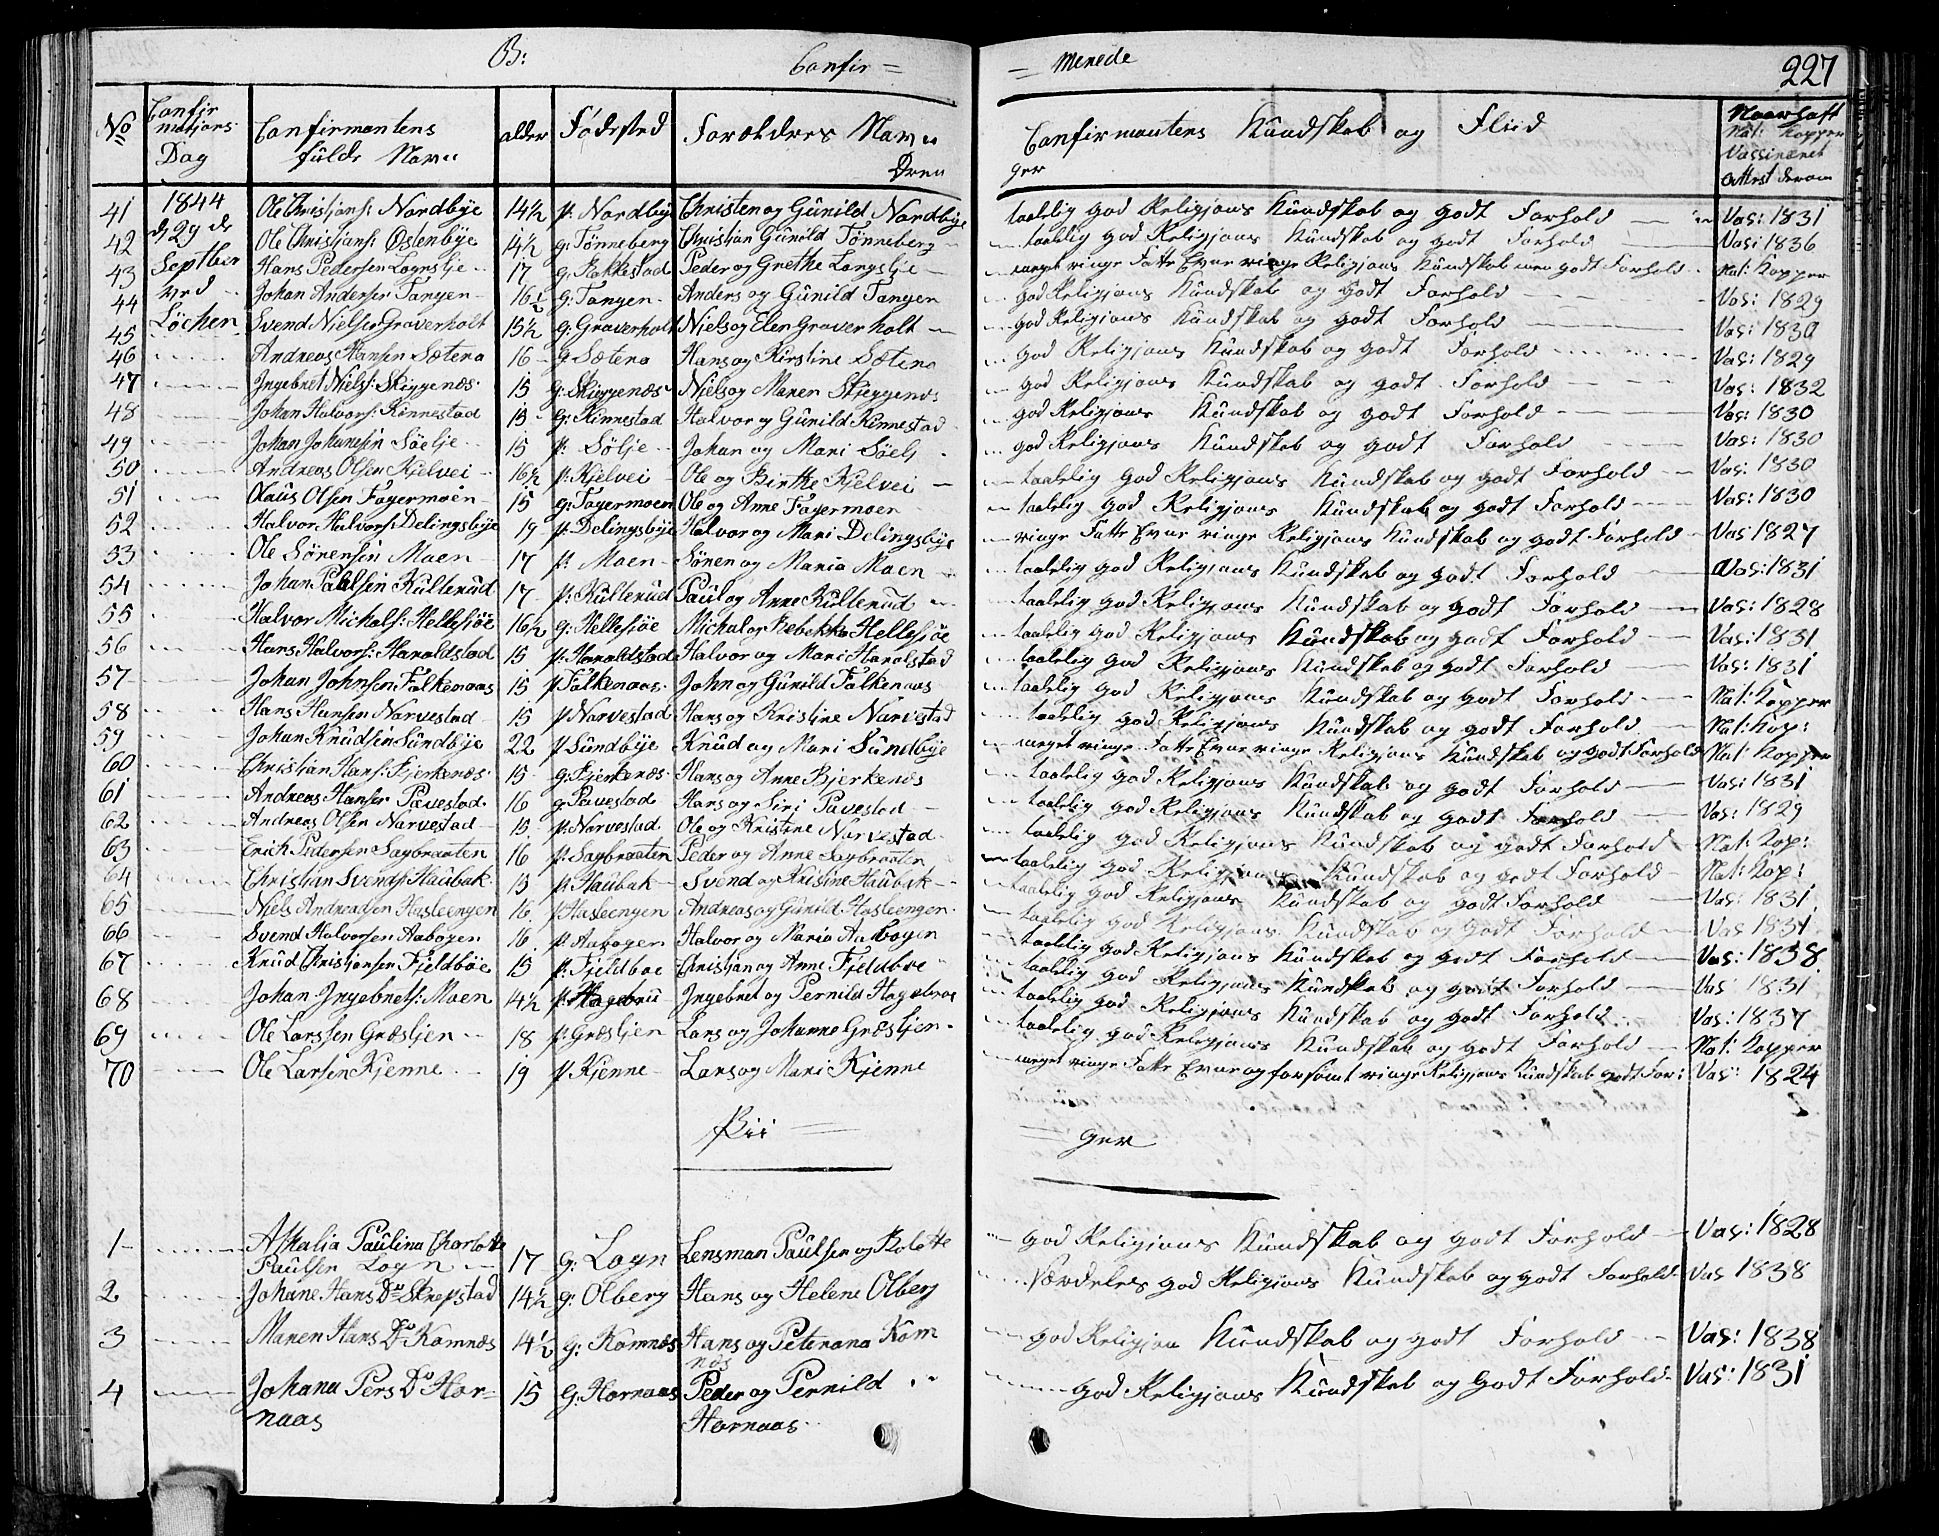 B: Confir = = merede 227
No Confirmasjons Dag Confirmantens fulde Navn alder Fødested Forældres Navn Confirmantens Kundskab og Fliid Naar haft Nat: Kopper Vassineret Attest derom
Dren ger
41 1844 Ole Christjans: Nordbye 14½ p: Nordby Christen og Gunild Nordbye taalelig god Religjons Kundskab og godt Forhold Vas: 1831
42 d 29 de Ole Christjans: Østenbye 14½ g: Tønneberg Christjan Gunild Tønneberg taalelig god Religjons Kundskab og godt Forhold Vas: 1836
43 Septber Hans Pedersen 17 g: Rakkestad Peder og Grethe meget ringe Fatte Evne ringe Religjons Kundskab men godt Forhold Nat: Kopper
44 ved Johan Andersen Tangen 16½ g: Tangen Anders og Gunild Tangen god Religjons Kundskab og godt Forhold Vas: 1829
45 Løchen Svend Nielsen Graverholt 15½ g: Graverholt Niels og Elen Graverholt god Religjons Kundskab og godt Forhold Vas: 1830
46 Andreas Hansen Sætera 16 g: Sætera Hans og Kirstine Sætera god Religjons Kundskab og godt Forhold Vas: 1829
47 Ingebret Niels: Skiggenæs 15 g: Skieggenæs Niels og Maren Skjeggenæs god Religjons Kundskab og godt Forhold Vas: 1832
48 Johan Halvors: Kinnestad 15 g: Kinnestad Halvor og Gunild Kinnestad god Religjons Kundskab og godt Forhold Vas: 1830
49 Johan Johanesen Søelje 15 p: Sølje Johan og Mari Søelj god Religjons Kundskab og godt Forhold Vas: 1830
50 Andreas Olsen Kjelvei 16½ p: Kjelvei Ole og Birthe Kjelvei taalelig god Religjons Kundskab og godt Forhold Vas: 1830
51 Olaus Olsen Fagermoen 15 g: Fagermoen Ole og Anne Fagermoen taalelig god Religjons Kundskab og godt Forhold Vas: 1830
52 Halvor Halvors: Delingsbye 19 p: Delingsbye Halvor og Mari Delingsbye ringe Fatte Evne ringe Religjons Kundskab og godt Forhold Vas 1827
53 Ole Sørensen Moen 17 p: Moen Sören og Maria Moen taalelig god Religjons Kundskab og godt Forhold Vas: 1831
54 Johan Paulsen Kulterud 17 p: Kulterud Paul og Anne Kulterud taalelig god Religjons Kundskab og godt Forhold Vas: 1828
55 Halvor Michals: Hellesjöe 16½ g: Hellesjöe Michal og Rebekka Hellesjöe taalelig god Religjons Kundskab og godt Forhold Vas: 1831
56 Hans Halvors: Haroldstad 15 p: Haroldstad Halvor og Mari Harolstad taalelig god Religjons Kundskab og godt Forhold Vas: 1831
57 Johan Johnsen Falkenaas 15 p Falkenaas John og Gunild Falkenaas taalelig god Religjons Kundskab og godt Forhold Nat: Kopper
58 Hans Hansen Narvestad 15 p Narvestad Hans og Kristine Narvestad taalelig god Religjons Kundskab og godt Forhold Nat: Kop:
59 Johan Knudsen Sundbye 22 p Sundbye Knud og Mari Sundbye meget ringe Fatte Evne ringe Religjons Kundskab og godt Forhold Nat: Kopper
60 Christjan Hans: Bjerkenæs 15 g: Bjerkenæs Hans og Anne Bjerkenæs taalelig god Religjons Kundskab og godt Forhold Vas: 1831
61 Andreas Hansen Pavestad 16 g: Pavestad Hans og Siri Pavestad taalelig god Religjons Kundskab og godt Forhold Vas: 1829
62 Andreas Olsen Narvestad 15 p: Narvestad Ole og Kristine Narvestad taalelig god Religjons Kundskab og godt Forhold Nat: Kop:
63 Erich Pedersen Sagbraaten 16 p: Sagbraaten Peder og Anne Sagbraaten taalelig god Religjons Kundskab og godt Forhold Nat: Kop:
64 Christjan Svends: Haubak 15 p: Haubak Svend og Kristine Haubak taalelig god Religjons Kundskab og godt Forhold Vas: 1831
65 Niels Andreasen Hasleengen 16 p Hasleengen Andreas og Gunild Hasleengen taalelig god Religjons Kundskab og godt Forhold Vas 1831
66 Svend Halvorsen Aabogen 16 p Aabogen Halvor og Maria Aabogen taalelig god Religjons Kundskab og godt Forhold Vas: 1838
67 Knud Christjansen Fjeldböe 15 p: Fjeldboe Christjan og Anne Fjeldboe taalelig god Religjons Kundskab og godt Forhold Vas 1831
68 Johan Ingebrets: Moen 14½ p: Hagebru Ingebret og Pernild Hagebroe taalelig god Religjons Kundskab og godt Forhold Vas: 1837
69 Ole Larssen Græsljen 18 p: Græsljen Lars og Johanne Græsljen taalelig god Religjons Kundskab og godt Forhold Nat: Kopper
70 Ole Larsen Kjenne 19 p: Kjenne Lars og Mari Kjenne meget ringe Fatte Evne og forsömt ringe Religjons Kundskab godt For: Vas: 1824
Pii = = ger
1 Athalia Paulina Charlotte Paulsen Logn 17 g: Logn Lensman Paulsen og Bolette god Religjons Kundskab og godt Forhold Vas: 1828
2 Johane Hans Dr Skrepstad 14½ g: Olberg Hans og Helene Olberg særdeles god Religjons Kundskab og godt Forhold Vas 1838
3 Maren Hans Dr Komnæs 14½ g: Komnæs Hans og Peternana Kom næs god Religjon Kundskab og godt Forhold Vas: 1838
4 Johana Pers Dr Hornaas 15 g: Hornaas Peder og Pernild Hornaas god Religjons Kundskab og godt Forhold Vas: 1831